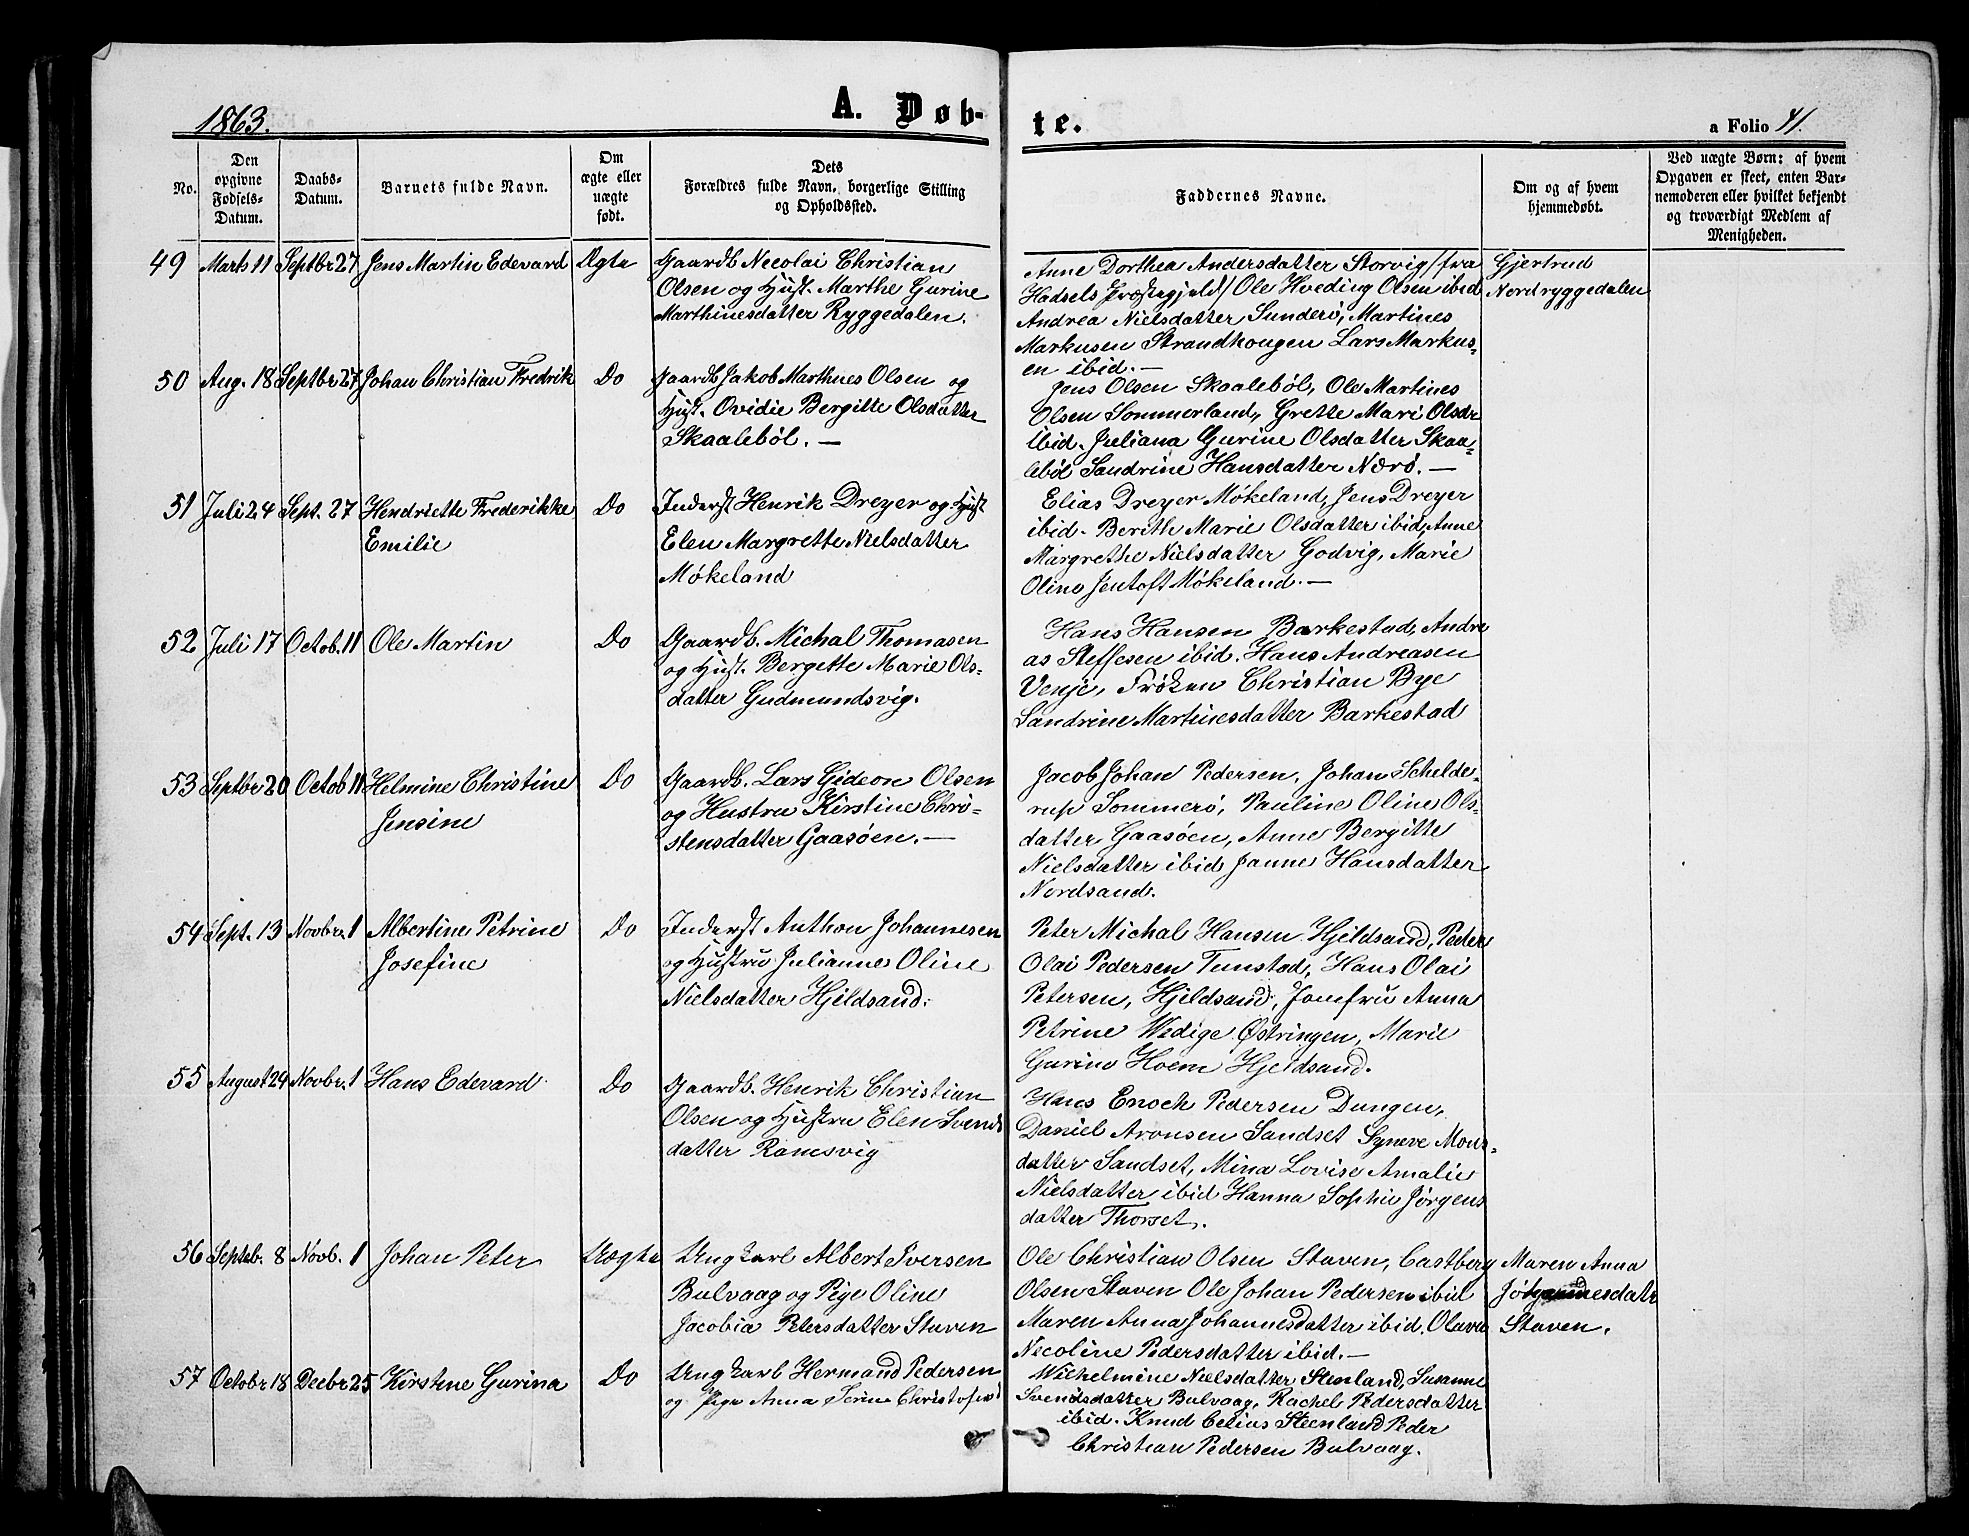 1863.
A. Døb-
te.
a Folio 41.
No.
Den
opgivne
Fødsels-
Datum.
Daabs-
Datum.
Barnets fulde Navn.
Om
ægte eller
uægte
født.
Dets
Forældres fulde Navn, borgerlige Stilling
og Opholdssted.
Faddernes Navne.
Om og af hvem
hjemmedøbt.
Ved uægte Børn: af hvem
Opgaven er skeet, enten Bar-
nemoderen eller hvilket bekjendt
og troværdigt Medlem af
Menigheden.
49 Marts 11 Septbr 27 Jens Martin Edevard Ægte
Gaardb Necolai Christian
Olsen og Hust. Marthe Gurine
Marthinesdatter Ryggedalen.
Anne Dorthea Andersdatter Storvig (fra
Hadsels Præstegjeld) Ole Hveding Olsen ibid
Andrea Nielsdatter Sunderø, Martines
Markusen Strandhougen Lars Markus-
en ibid. —
Gjertrud
Nordryggedalen
50 Aug. 18 Septbr 27 Johan Christian Fredrik Do
Gaardb Jakob Marthines Olsen og
Hust. Ovidie Bergitte Olsdatter
Skaalebøl. —
Jens Olsen Skaalebøl, Ole Martines
Olsen Sommerland, Grette Mari Olsdr
ibid. Juliana Gurine Olsdatter Skaa-
lebøl Sandrine Hansdatter Nærø. —
51 Juli 24 Sept. 27 Hendriette Frederikke
Emilie
Do
Inderst Henrik Dreyer og Hust
Elen Margrette Nielsdatter
Møkeland
Elias Dreyer Møkeland, Jens Dreyer
ibid. Berith Marie Olsdatter ibid, Anne
Margrethe Nielsdatter Godvig, Marie
Oline Jentoft Møkeland. —
52 Juli 17 Octob. 11 Ole Martin Do
Gaardb. Michal Thomasen
og Hust. Bergette Marie Ols-
datter Gudmundsvig.
Hans Hansen Barkestad, Andre
as Steffesen ibid. Hans Andreasen
Venje, Frøken Christian Bye
Sandrine Martinesdatter Barkestad
53 Septbr 20 Octob 11 Helmine Christine
Jensine
Do
Gaardb. Lars Gideon Olsen
og Hustru Kirstine Chri-
stensdatter Gaasøen. —
Jacob Johan Pedersen, Johan Schelde-
rup Sommerø, Pauline Oline Ols-
datter Gaasøen, Anne Bergitte
Nielsdatter ibid Janne Hansdatter
Nordsand.
54 Sept. 13 Novbr. 1 Albertine Petrine
Josefine
Do
Inderst Anthon Johannesen
og Hustru Julianne Oline
Nielsdatter Hjeldsand.
Peter Michal Hansen Hjeldsand, Peder
Olai Pedersen Tunstad, Hans Olai
Petersen, Hjeldsand, Jomfru Anna
Petrine Wedige Østringen, Marie
Gurine Hoem Hjeldsand.
55 August 24 Novbr. 1 Hans Edevard Do
Gaardb. Henrik Christian
Olsen og Hustru Elen Svends
datter Ramsvig
Hans Enoch Pedersen Dungen,
Daniel Aronsen Sandset Syneve Mons-
datter Sandset, Mina Lovise Amalie
Nielsdatter ibid Hanna Sophie Jørgens
datter Thorset.
56 Septeb. 8 Novb. 1 Johan Peter Uægte
Ungkarl Albert Iversen
Bulvaag og Pige Oline
Jacobia Petersdatter Staven
Ole Christian Olsen Staven, Castberg
Olsen Staven Ole Johan Pedersen ibid
Maren Anna Johannesdatter ibid, Olava
Necoline Pedersdatter ibid. —
Maren Anna
Staven.
57 Octobr 18 Decbr 25 Kirstine Gurina Do
Ungkarl Hermand Pedersen
og Pige Anna Serine Christofersd
Wichelmine Nielsdatter Stenland, Susanne
Svendsdatter Bulvaag, Rachel Pedersdatter
ibid. Knud Celius Steenland Peder
Christian Pedersen Bulvaag.